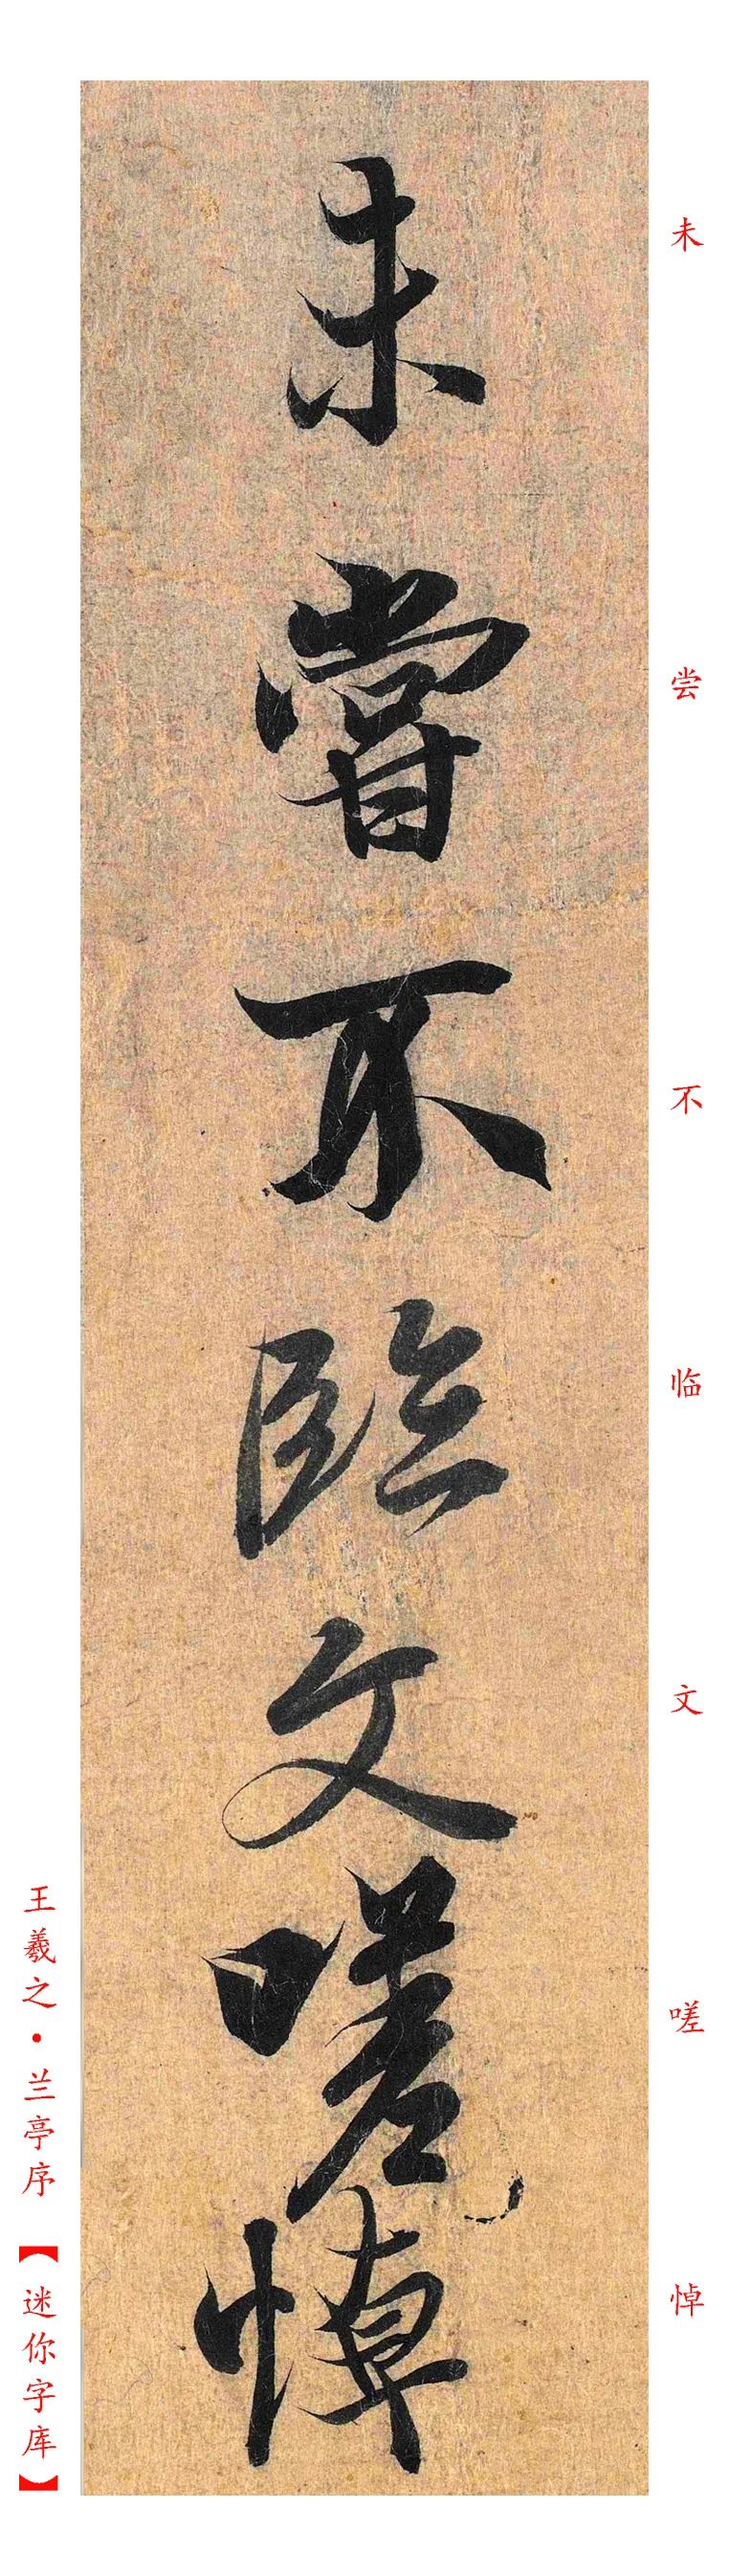 未嘗不臨文嗟悼
未
尝
不
临
文
嗟
悼
王羲之·兰亭序【迷你字库】